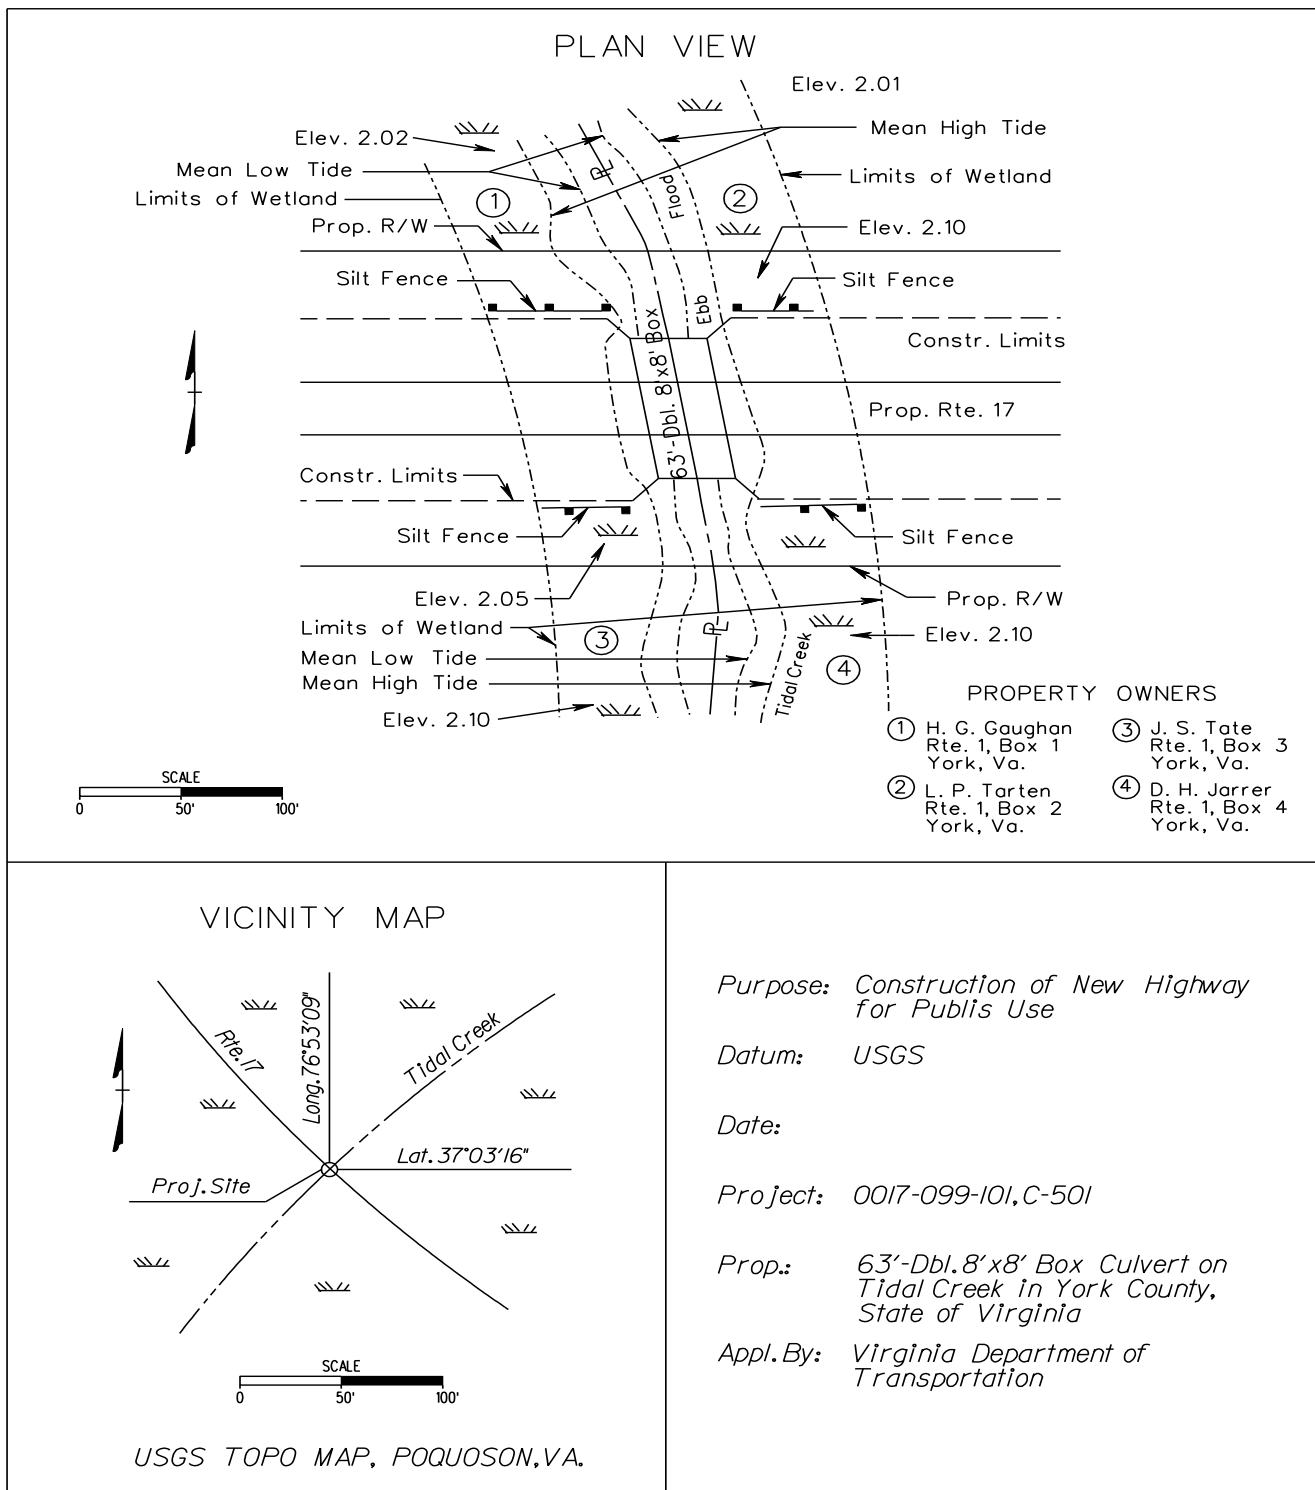 PLAN VIEW
Elev. 2.01
Mean High Tide
Elev. 2.02
Mean Low Tide
Limits of Wetland
Limits of Wetland
1
2
Flood
PL
Prop. R/W
Elev. 2.10
Silt Fence
Silt Fence
Ebb
Constr. Limits
63'-Dbl. 8'x8' Box
Prop. Rte. 17
Constr. Limits
Silt Fence
Silt Fence
Elev. 2.05
Prop. R/W
Limits of Wetland
3
PL
Elev. 2.10
Mean Low Tide
Mean High Tide
Tidal Creek
4
Elev. 2.10
PROPERTY OWNERS
1 H. G. Gaughan
Rte. 1, Box 1
York, Va.
2 L. P. Tarten
Rte. 1, Box 2
York, Va.
3 J. S. Tate
Rte. 1, Box 3
York, Va.
4 D. H. Jarrer
Rte. 1, Box 4
York, Va.
SCALE
0 50' 100'
VICINITY MAP
Rte. 17
Long. 76°53'09"
Tidal Creek
Lat. 37°03'16"
Proj. Site
SCALE
0 50' 100'
USGS TOPO MAP, POQUOSON, VA.
Purpose: Construction of New Highway
for Publis Use
Datum: USGS
Date:
Project: 0017-099-101, C-501
Prop.: 63'-Dbl. 8'x8' Box Culvert on
Tidal Creek in York County,
State of Virginia
Appl. By: Virginia Department of
Transportation